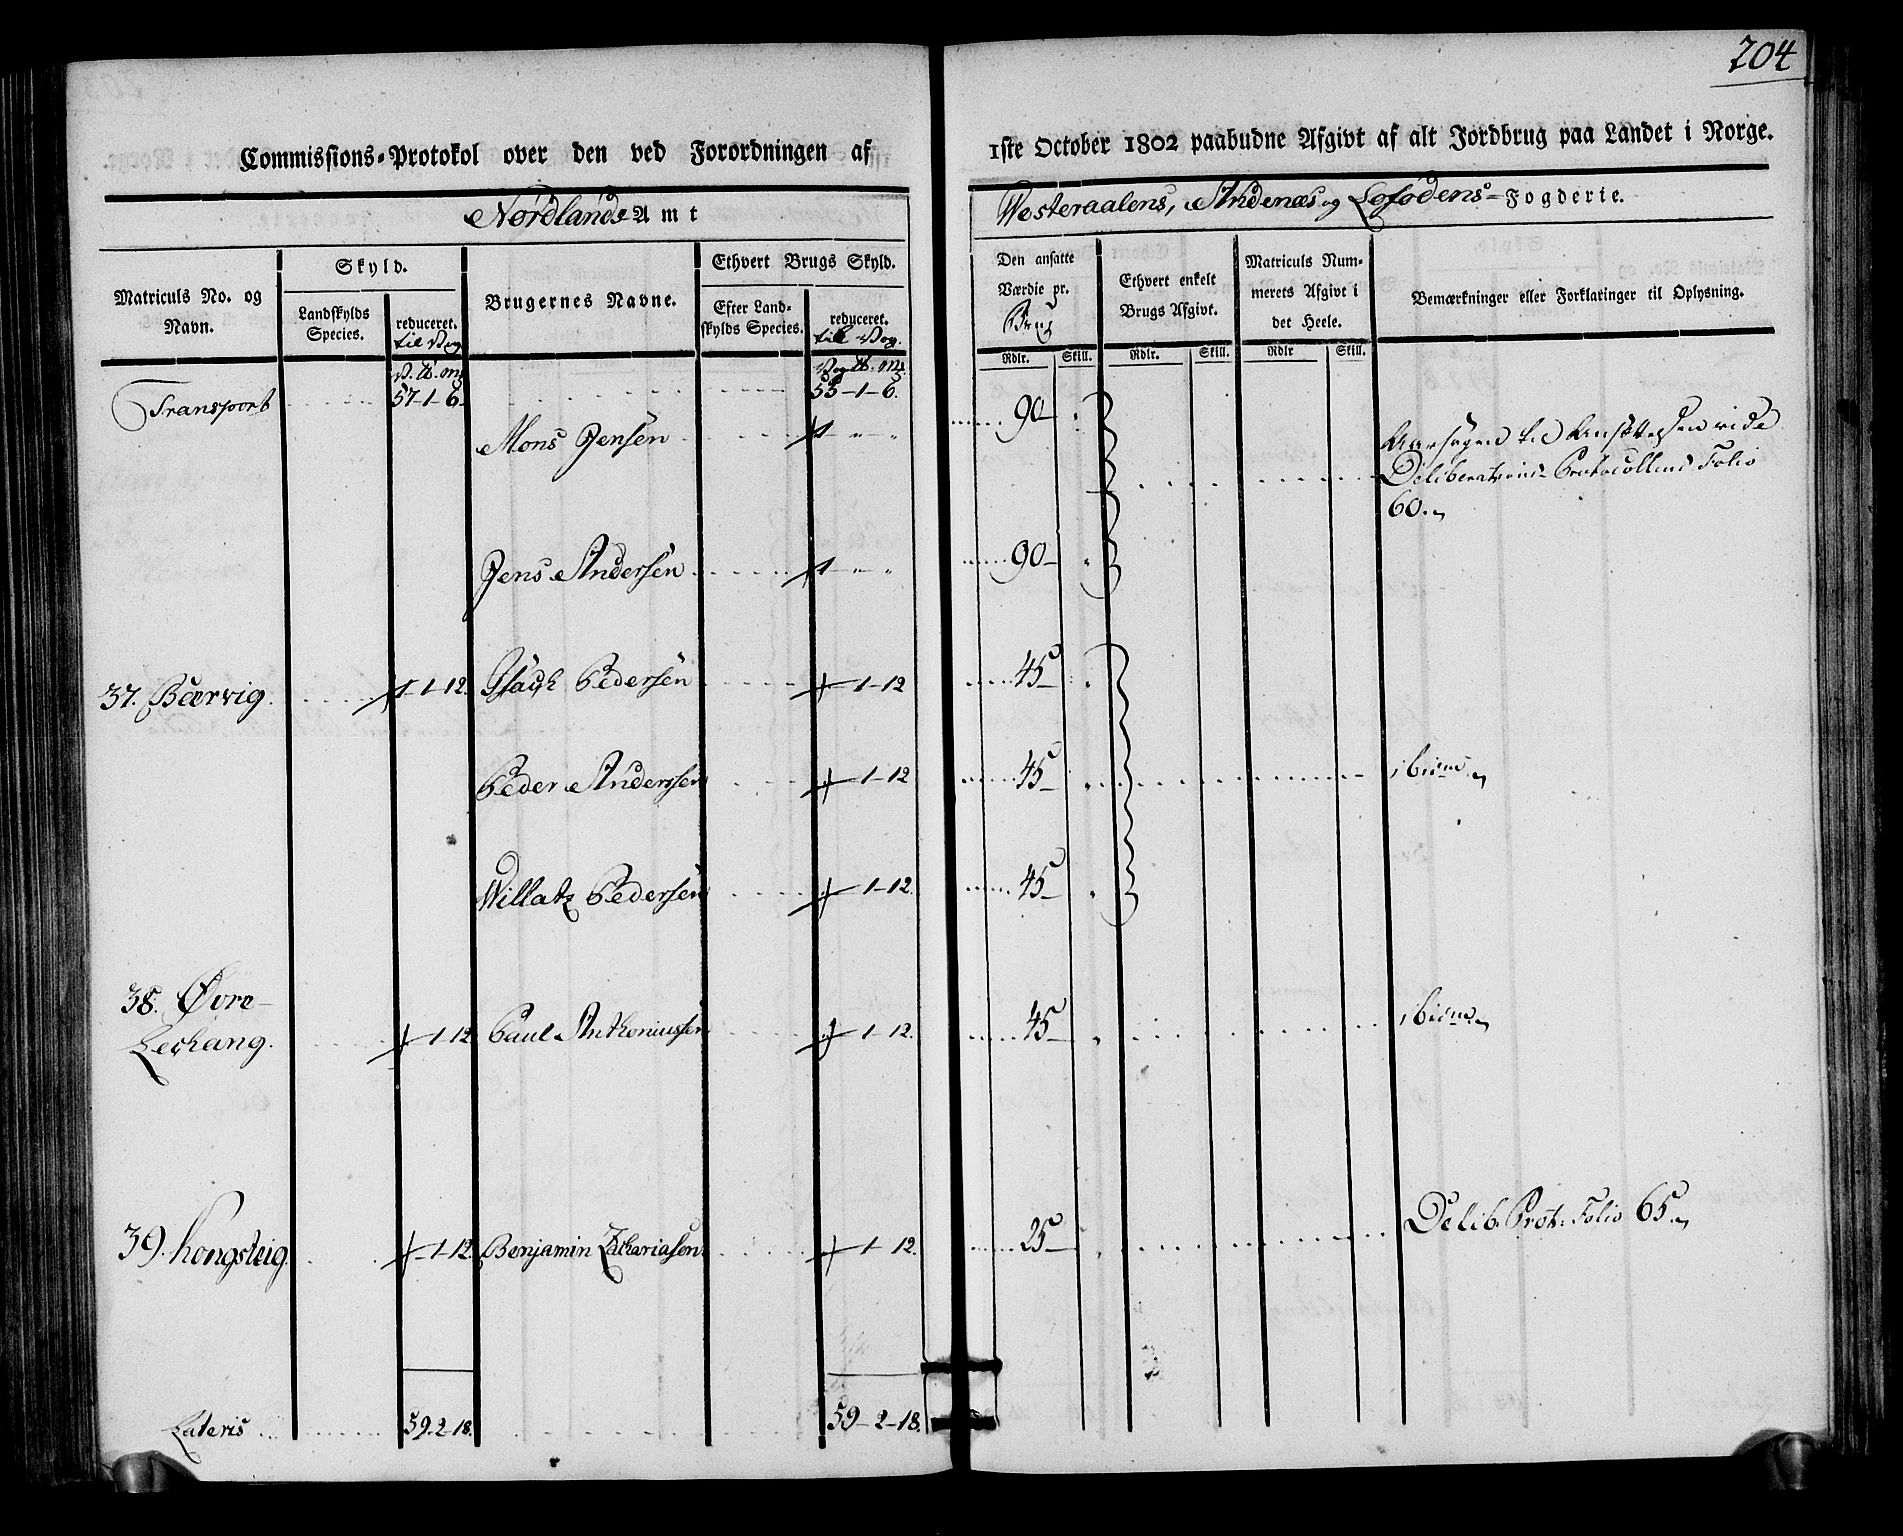 204
Commissions-Protokol over den ved Forordningen af
1ste October 1802 paabudne Afgivt af alt Jordbrug paa Landet i Norge.
Nordlands Amt
Westeraalens, Andenæs og Lofodens-Fogderie.
Matriculs No. og Navn.
Skyld.
Landskylds Species.
reduceret. til Vog
Brugernes Navne.
Ethvert Brugs Skyld.
Efter Landskylds Species.
reduceret. til Vog.
Den ansatte Værdie pr. Brug
Rdlr. Skill.
Ethvert enkelt Brugs Afgivt.
Rdlr. Skill.
Matriculs Nummerets Afgivt i det Heele.
Rdlr Skill.
Bemærkninger eller Forklaringer til Oplysning.
V. ℔. mk Vog ℔. mk.
Transport 57-1-6. 55-1-6.
Mons Jensen 1 - " - " 90 - Aarsagen til Ansættelsen vide
Deliberations-Protocollens Folio
60.
Jens Andersen 1 - " - " 90 - "
37. Bærvig. 1-1-12. Isach Pedersen 1-12 45 - "
Peder Anderssen 1-12 45 - " ibidm
Willatz Pedersen 1-12. 45 - "
38. Øvre-
Leehang. 1-12 Paul Anthoniussen 1-12. 45 - " ibidm
39. Kongsteig. 1-12 Benjamin Zachariasen 1-12. 25 - " Delib. Prot: Folio 65.
Lateris 59-2-18. 59-2-18.